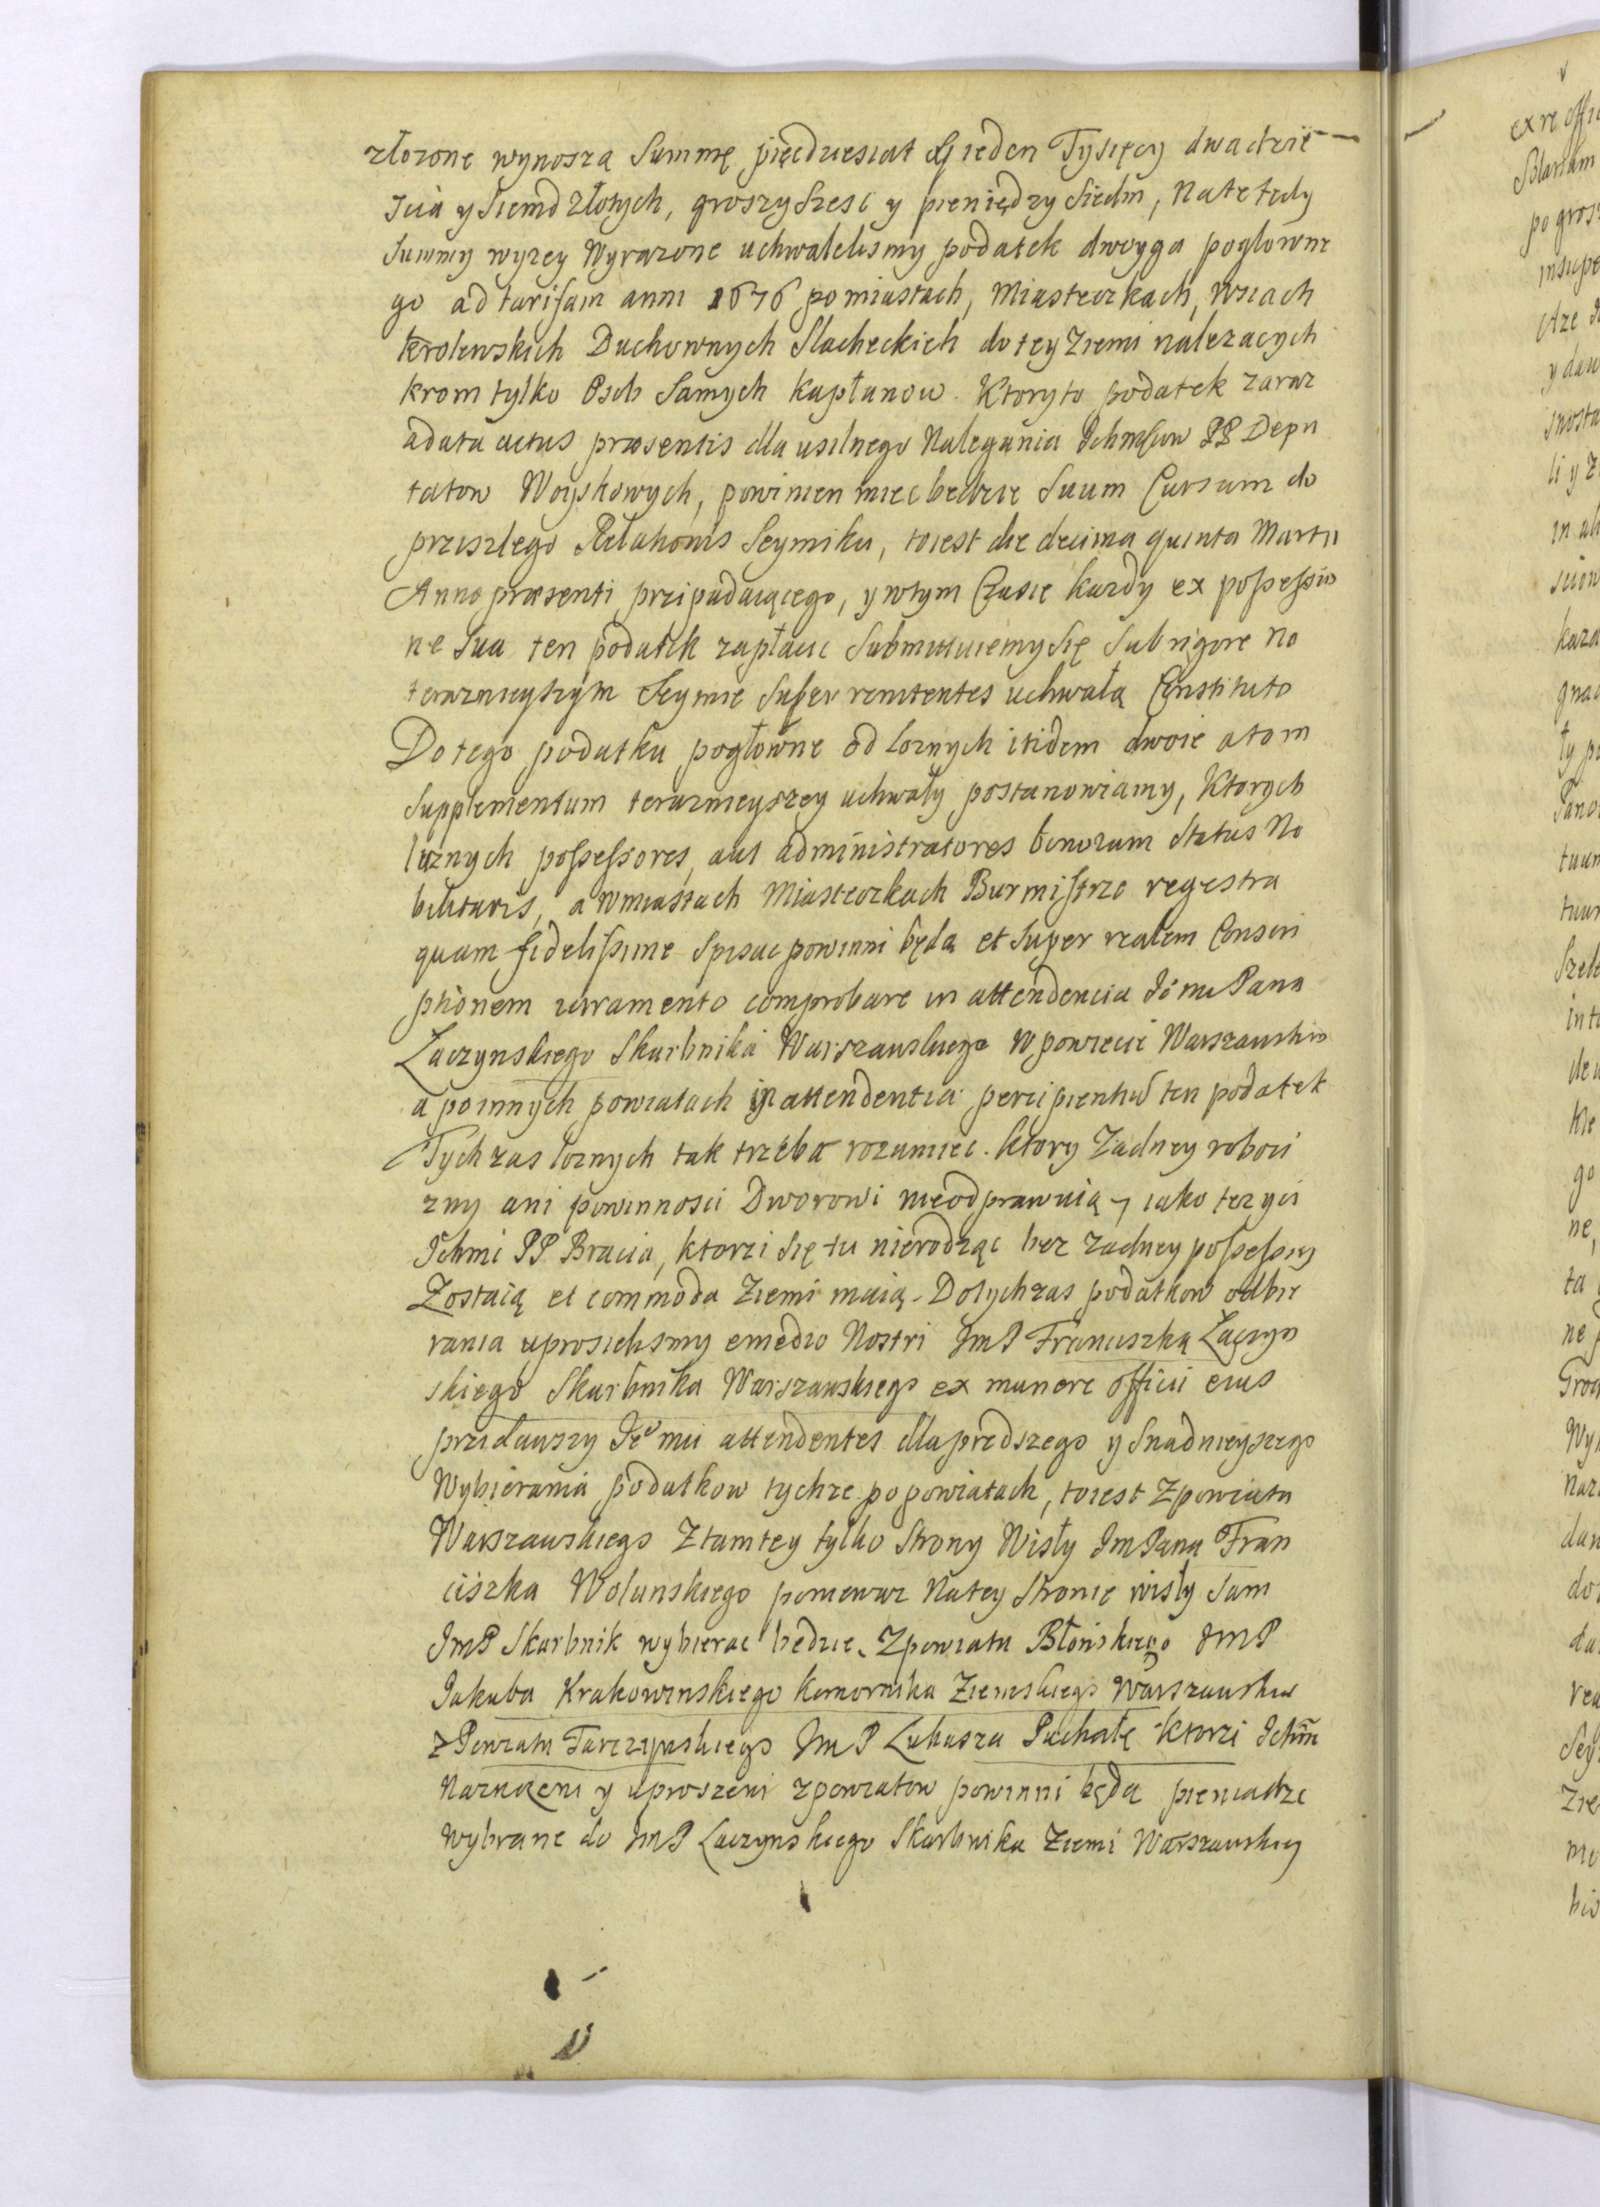 złozone wynoszą Summę pięcdziesiat y ieden Tysięcy dwadzie
scia y siedm złotych, groszy szesc y pieniędzy siedm, Na te tedy
Summy wyzey Wyrazone uchwalelismy podatek dwoyga pogłowne
go ad tarifam anni 1676 po miastach, Miasteczkach, Wsiach
krolewskich Duchownych Slacheckich do tey Ziemi nalezacych
krom tylko Osob Samych kapłanow. Ktory to podatek zaraz
a data actus præsentis dla usilnego Nalegania Ichmsow PP Depu
tatow Woyskowych, powinien miec bedzie Suum Cursum do
przyszlego Relationis Seymiku, toiest die decima quinta Martii
Anno præsenti przipadaiącego, y w tym Czasie kazdy ex possessio
ne sua ten podatek zapłacic Submituiemy się sub rigore na
teraznieyszym Seymie super renitentes uchwałą Constituto
Do tego podatku pogłowne od loznych itidem dwoie a to in
Supplementum terazneyszey uchwały postanowiamy, Ktorych
luznych possessores, aut administratores bonorum Status No
bilitaris, a w miastach Miasteczkach Burmistrze regestra
quam fidelissime spisac powinni będą et super realem Conscri
ptionem iuramento comprobare in attendencia Je mu Pana
Łaczynskiego Skarbnika Warszawskiego w powiecie Warszawskim
a po innych powiatach in attendentia percipientiū ten podatek
Tych zas loznych tak trzeba rozumiec. ktory Zadney roboci
zny ani powinnosci Dworowi nieodprawuią, iako tez y ci
Ichmi PP Bracia, ktorzi się tu nierodząc bez zadney possessiy
Zostaią et commoda Ziemi maią. Do tych zas podatkow odbie
rania uprosielismy e medio Nostri Jm P Franciszka Łaczyn
skiego Skarbnika Warszawskiego ex munere officii eius
przidawszy Je mu attendentes dla prędszego y Snadnieyszego
Wybierania podatkow tychze po powiatach, toiest Z powiatu
Warszawskiego Z tamtey tylko Strony Wisły Jm Pana Fran
ciszka Wolunskiego poniewaz Na tey Stronie wisly Sam
JmP Skarbnik wybierac bedzie. Z powiatu Błońskiego JMP
Jakuba Krakowinskiego komornika Ziemskiego Warszawskie
z Powiatu Tarczynskiego Jm P Łukasza Puchałę ktorzi Ichm
Naznaczeni y uproszeni z powiatow powinni będą pieniadze
wybrane do Jm P Łaczynskiego Skarbnika Ziemi Warszawskiey